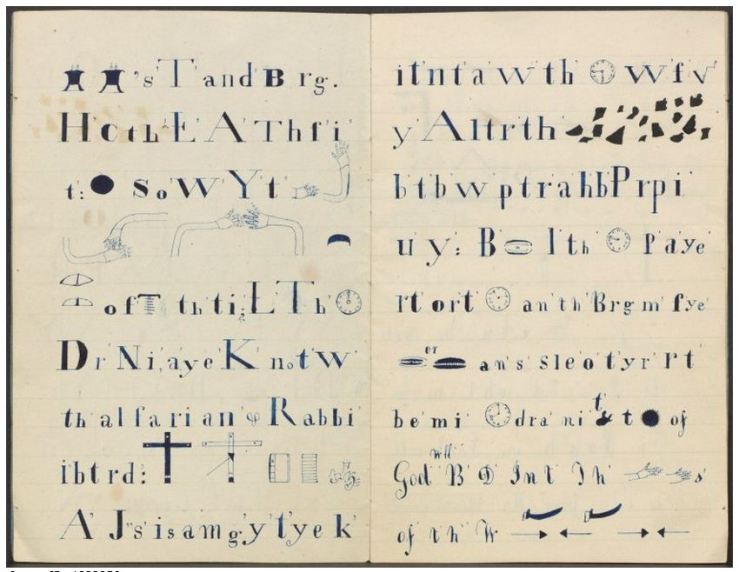 's T and B rg.
H O th E A T h f i
t: S o W Y t
of T th ti; L T h
D r N i, a y e K n o t w
th al f a r i an Rabbi
i b t r d:
A J's i s a m g y t y e k
i t n t a w th W f v
y A l t r t h
b t b w p t r a h b P r p i
u y: B I th P a y e
r t o r t an th B r g m f y e
er
an s s l e o t y r r t
t
b e m i d r a n i t o of
will
God B D I n t T h s
of t h W